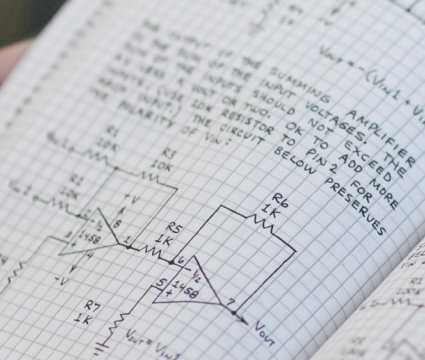 VOUT = -(VIN1 + VIN
THE OUTPUT OF THE SUMMING AMPLIFIER
IS THE SUM OF THE INPUT VOLTAGES. THE
SUM OF THE INPUTS SHOULD NOT EXCEED
A VOLT OR TWO. OK TO ADD MORE
INPUTS (USE 10K RESISTOR TO PIN 2 FOR
EACH INPUT). THE CIRCUIT BELOW PRESERVES
THE POLARITY OF VIN:
R1
10K
R1
10K
R1
10K
+V
2
8
3
+
1458
1
-V
R5
1K
R6
1K
6
-
1/2
5
+
1458
7
R7
1K
VOUT
VOUT = VIN1